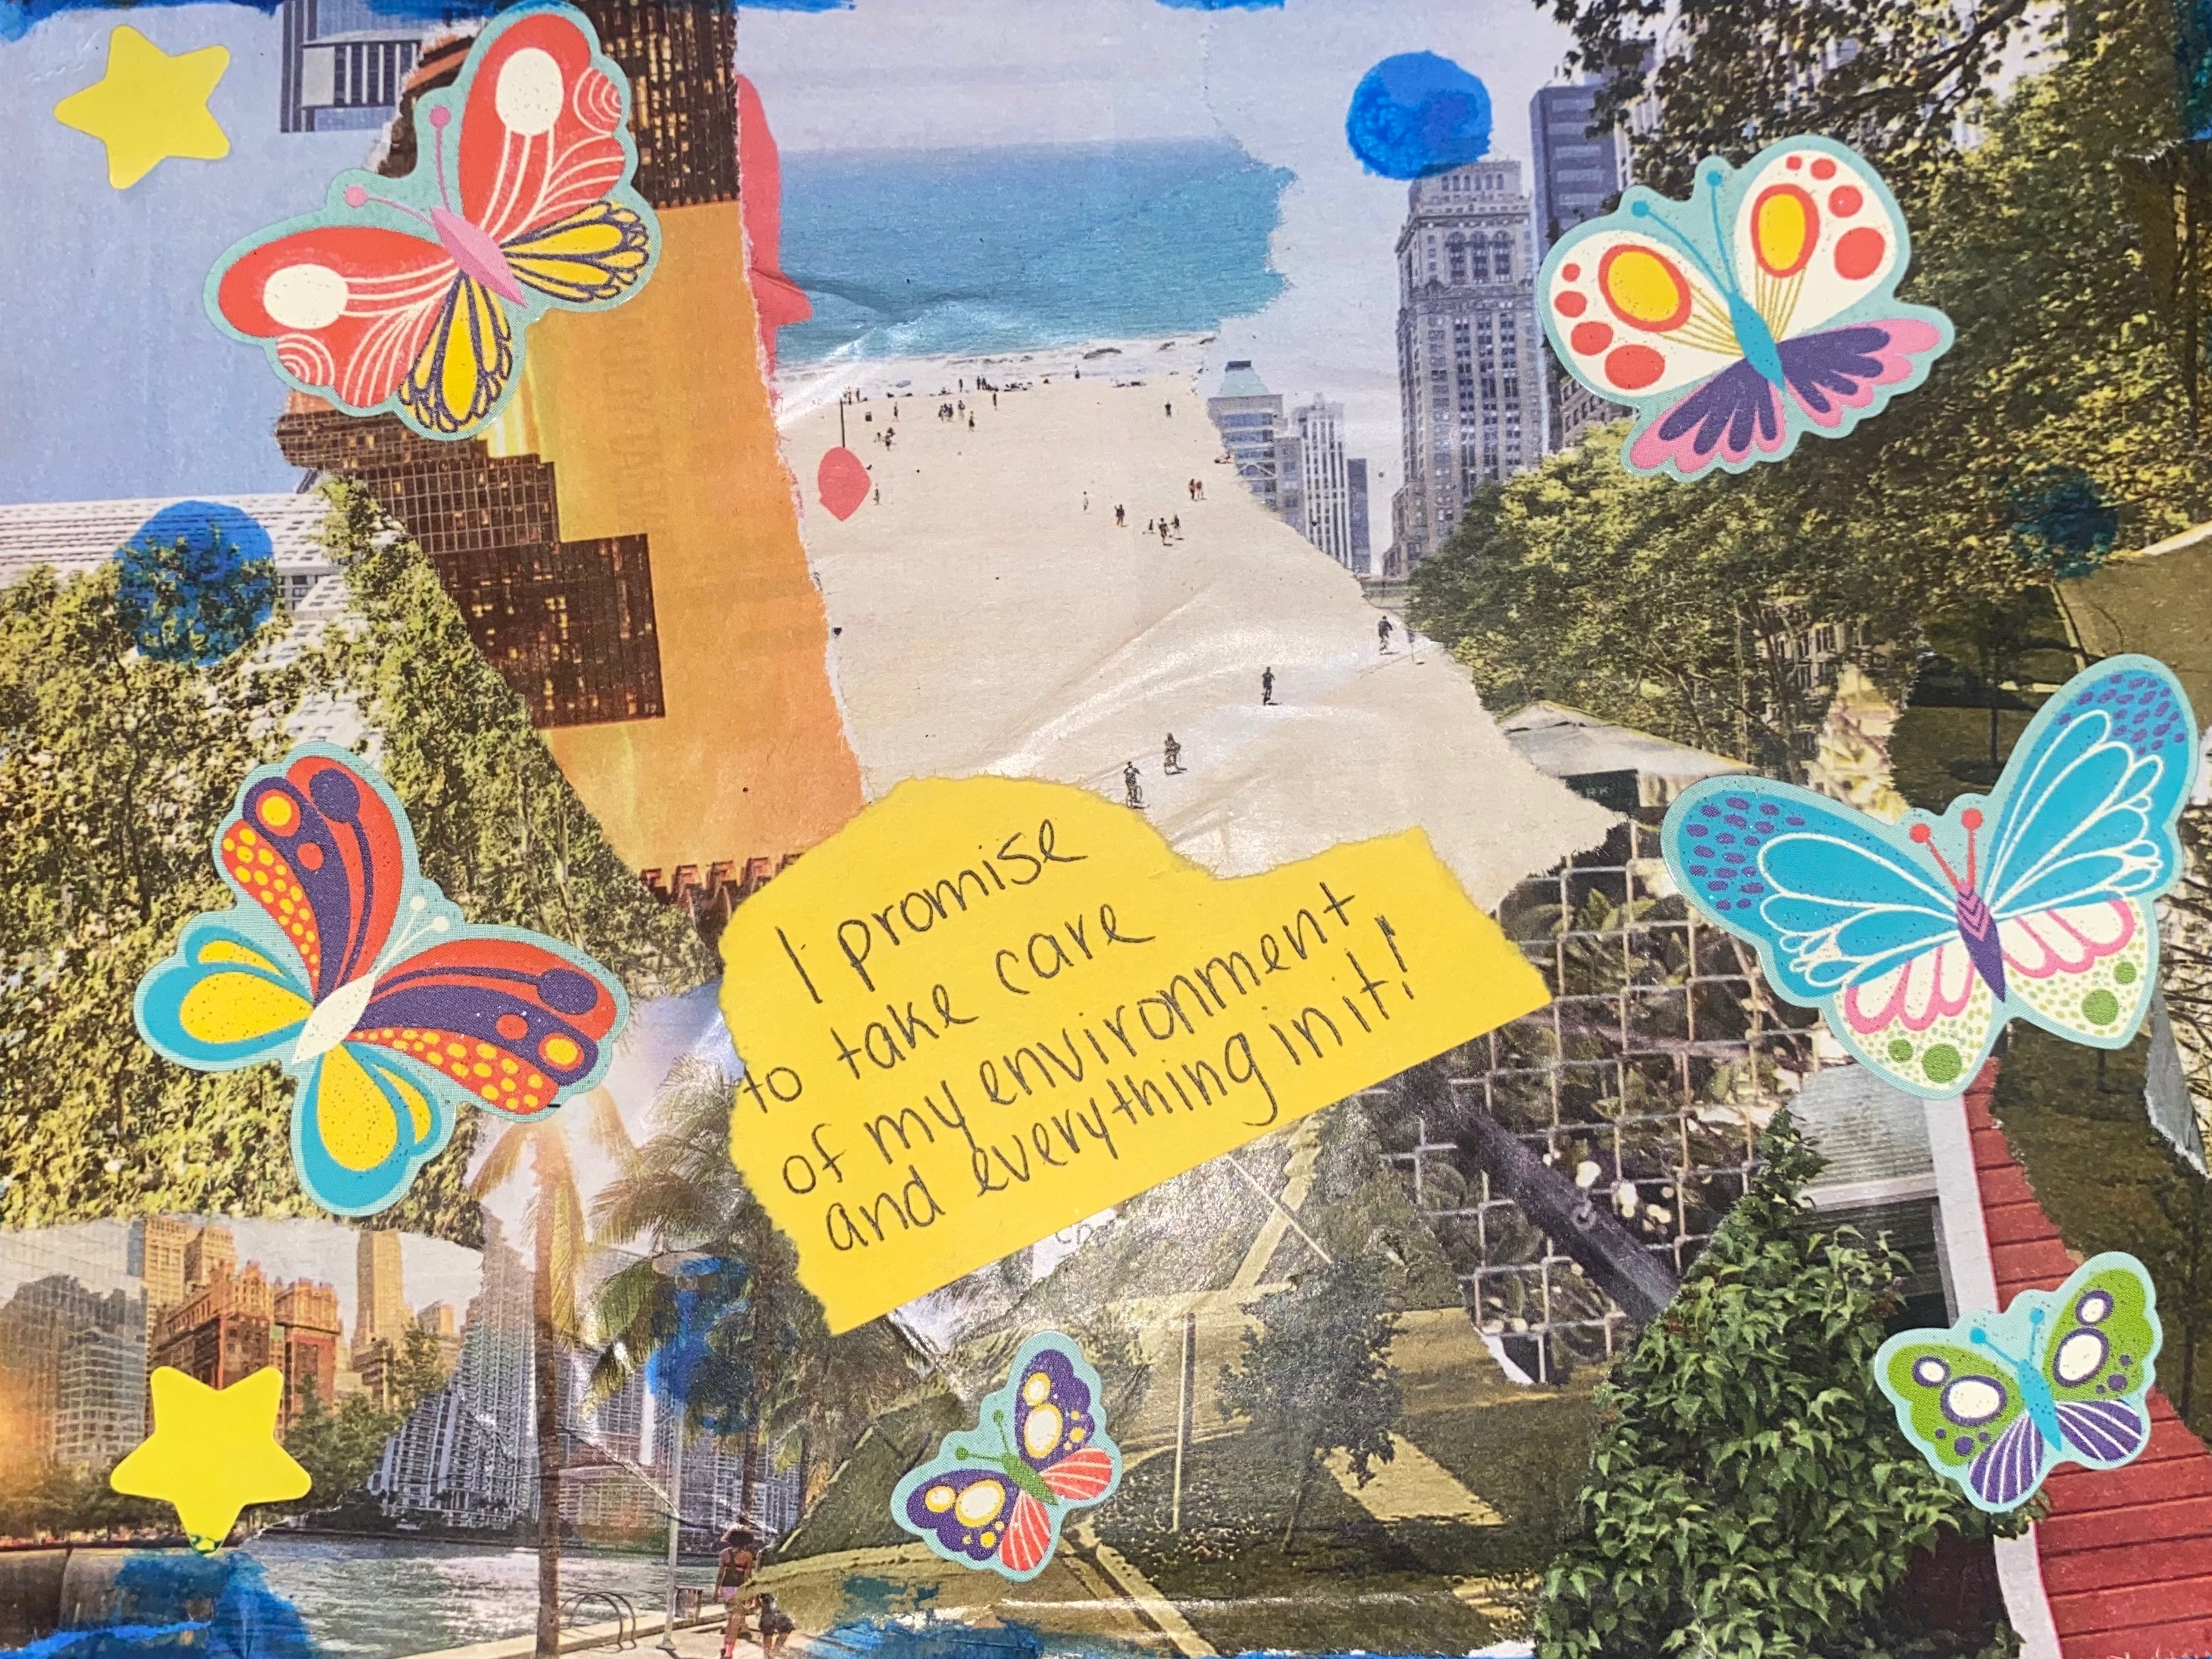 I promise
to take care
of my environment
and everything in it!